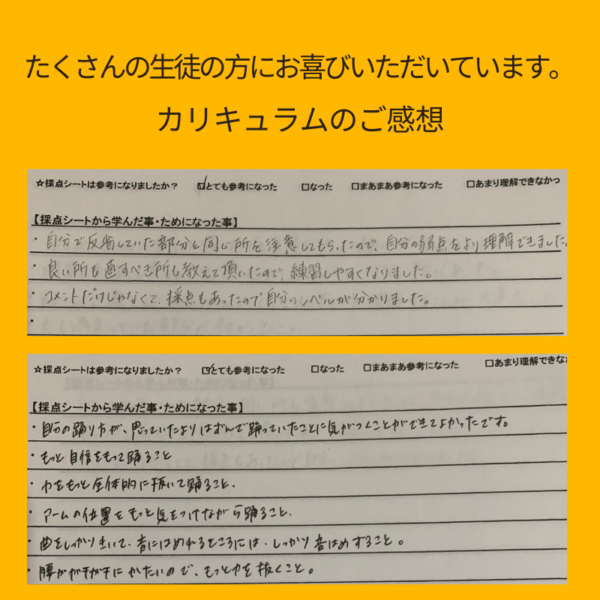 たくさんの生徒の方にお喜びいただいています。
カリキュラムのご感想
☆採点シートは参考になりましたか？ ☑とても参考になった □なった □まあまあ参考になった □あまり理解できなかっ
【採点シートから学んだ事・ためになった事】
・自分で反省していた部分と同じ所を注意してもらったので、自分の弱点をより理解できました。
・良い所も直すべき所も教えて頂いたので、練習しやすくなりました。
・コメントだけじゃなくて、採点もあったので自分のレベルが分かりました。
・
☆採点シートは参考になりましたか？ ☑とても参考になった □なった □まあまあ参考になった □あまり理解できな
【採点シートから学んだ事・ためになった事】
・自分の踊り方が、思っていたよりはずんで踊っていたことに気がつくことができてよかったです。
・もっと自信をもって踊ること
・力をもっと全体的に抜いて踊ること。
・アームの位置をもっと気をつけながら踊ること。
・曲をしっかりきいて、音にはめれるところには、しっかり音はめすること。
・腰がガチガチにかたいので、もっと力を抜くこと。